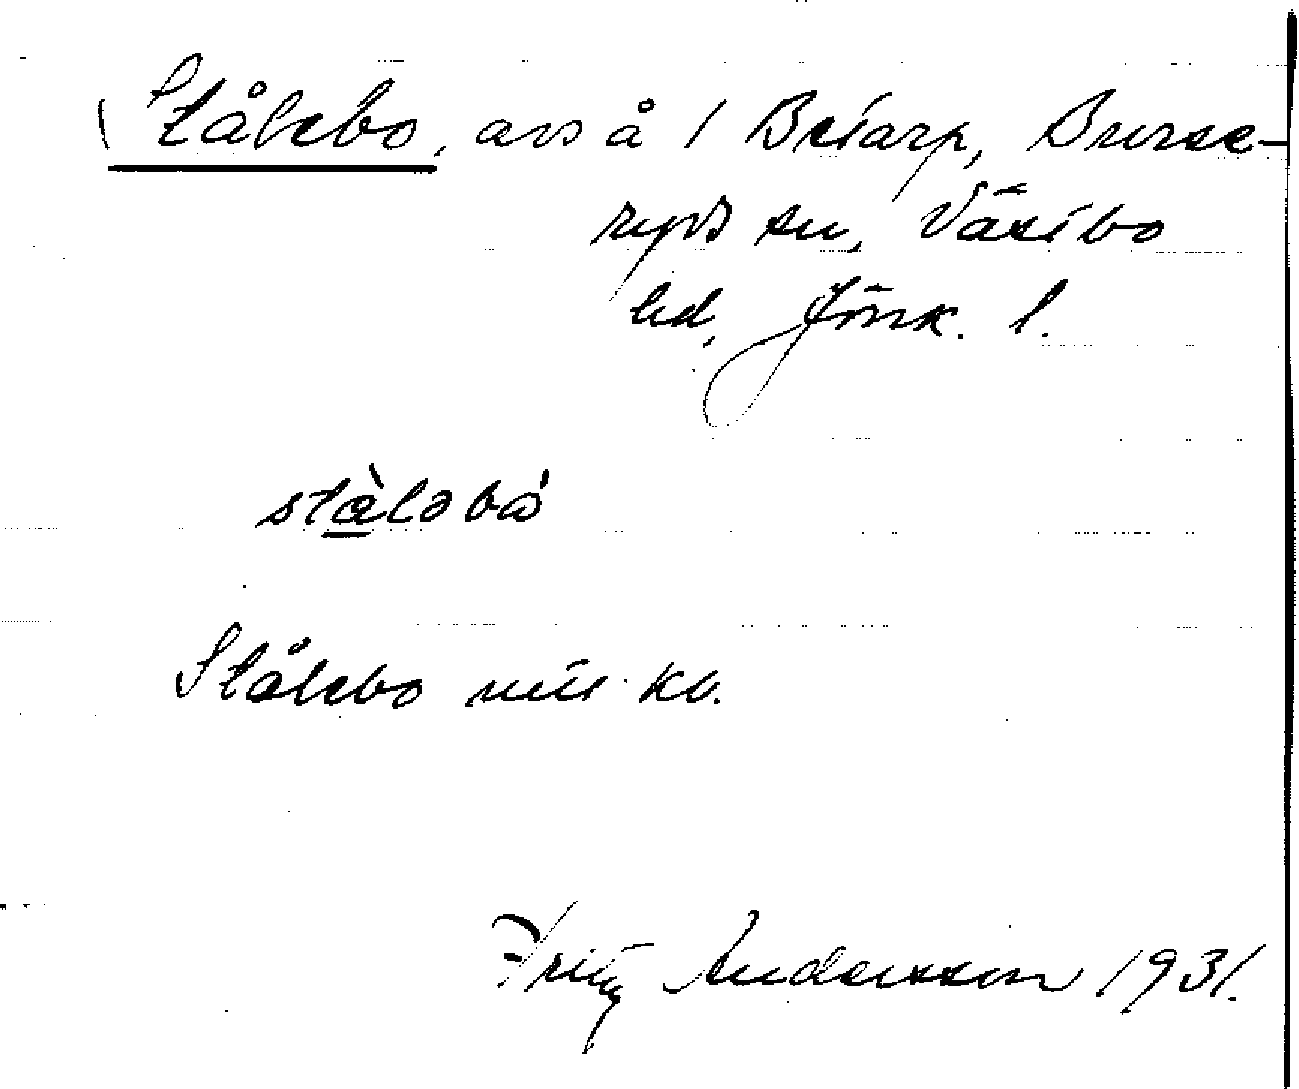 Stålebo, avs å 1 Betarp, Burse-
ryds sn, Västbo
hd, Jönk. l.
stàləbó
Stålebo kv.
Fritz Andersson 1931.